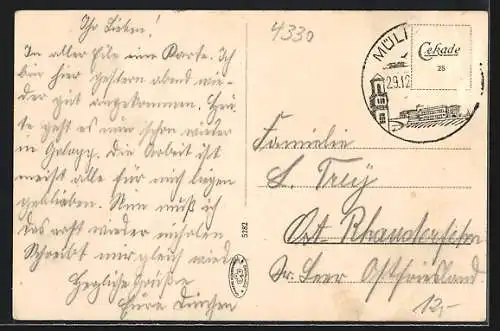 Ihr Lieben!
In aller Eile eine Karte. Ich
bin hier gestern abend wie-
der gut angekommen. Heu-
te geht es nun schon wieder
in Galopp. Die Arbeit ist
meist alle für mich liegen
geblieben. Nun muß ich
das erst wieder nachholen
Schreibt mir gleich wied
Herzliche Grüße
Eure Dinchen
4330
MÜL
29.12
Cekade
28
5282
Familie
L. Trey
Ost Rhauderfehn
Kr. Leer Ostfriesland
12,-